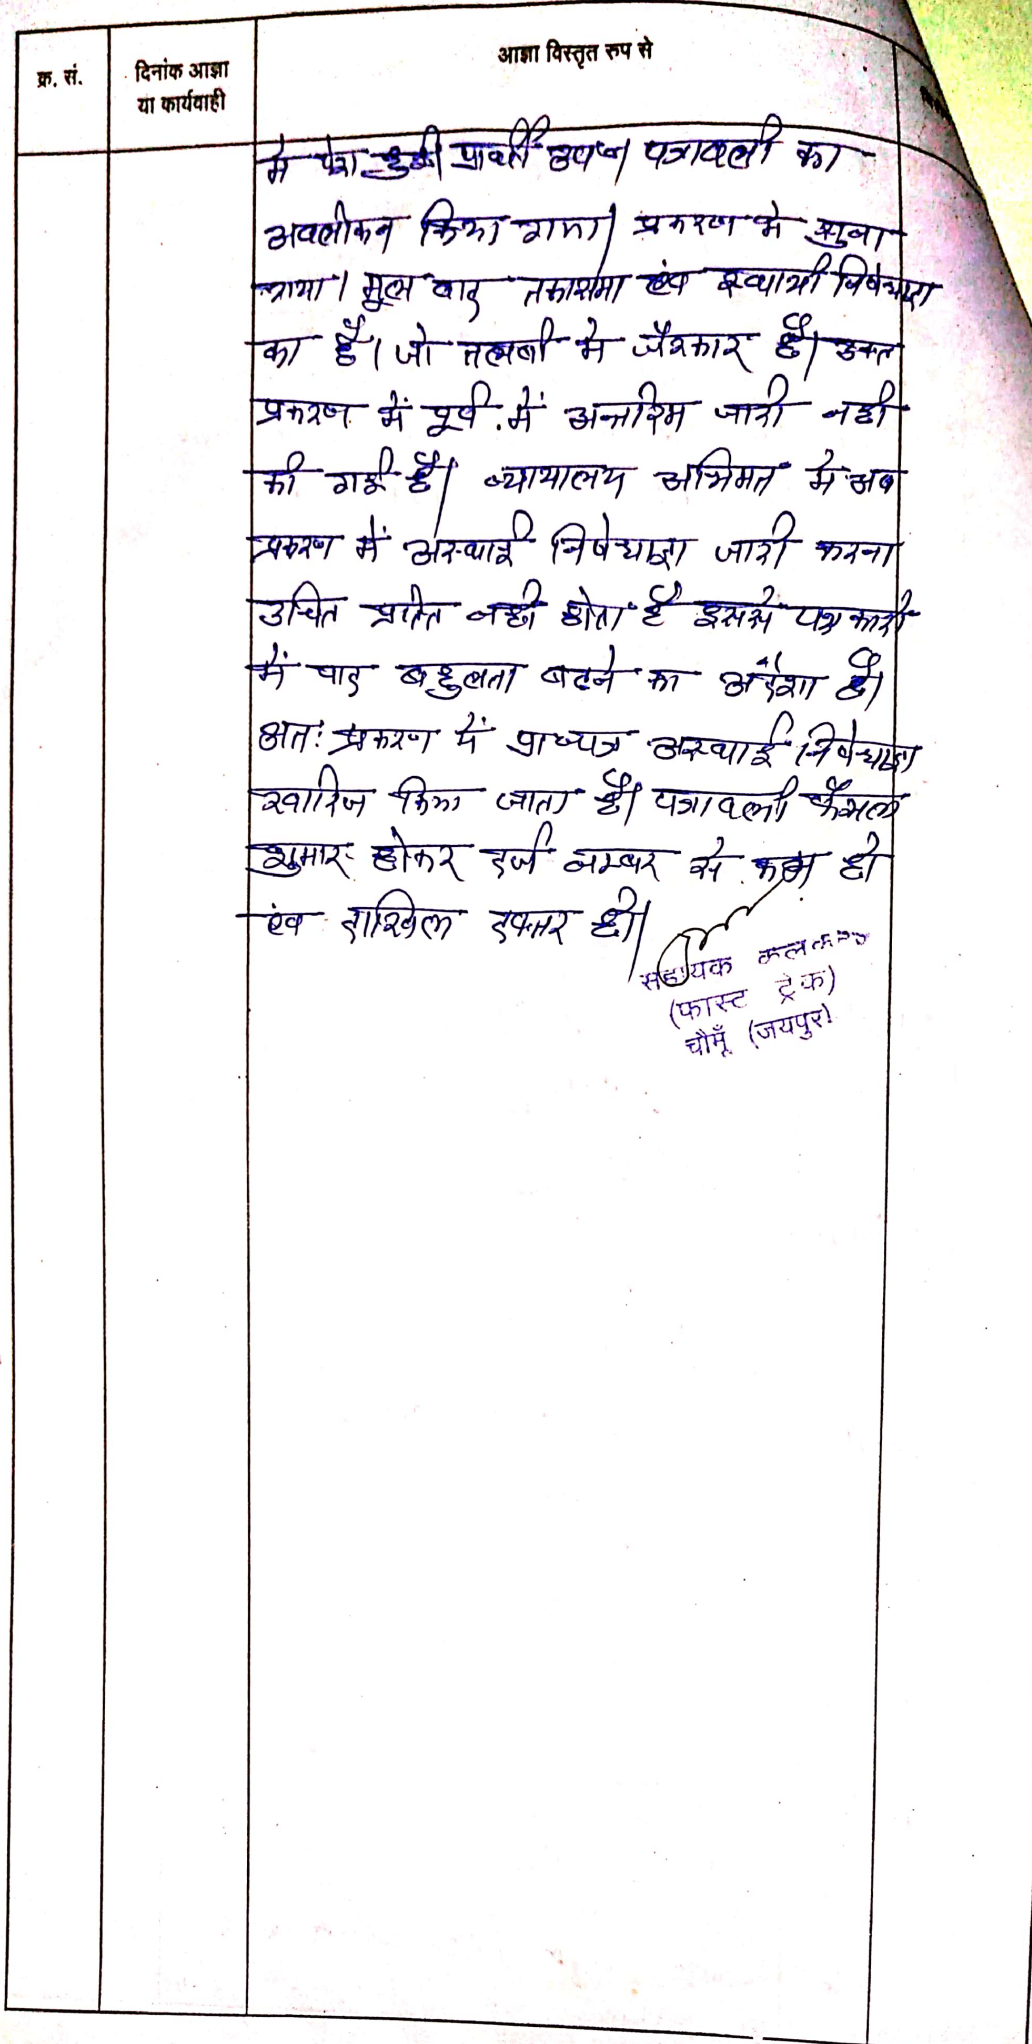 क्र. सं.
दिनांक आज्ञा
या कार्यवाही
आज्ञा विस्तृत रुप से
मे पेश हुई। प्रार्थी उप० । पत्रावली का
अवलोकन किया गया। प्रकरण मे सुना
गया। मुल वाद तकासमा एंव स्थायी निषेधाज्ञा
का है। जो तलबी मे जैरकार है। उक्त
प्रकरण में पूर्व में अन्तरिम जारी नही
की गई है। न्यायालय अभिमत मे अब
प्रकरण में अस्थाई निषेधाज्ञा जारी करना
उचित प्रतित नही होता है इससे पक्षकारो
में वाद बहुलता बढने का अंदेशा है।
अतः प्रकरण में प्रा०पत्र अस्थाई निषेधाज्ञा
खारिज किया जाता है। पत्रावली फैसल
शुमार होकर दर्ज नम्बर से कम हो
एंव दाखिल दफ्तर हो।
सहायक कलक्टर
(फास्ट ट्रेक)
चौमूँ (जयपुर)